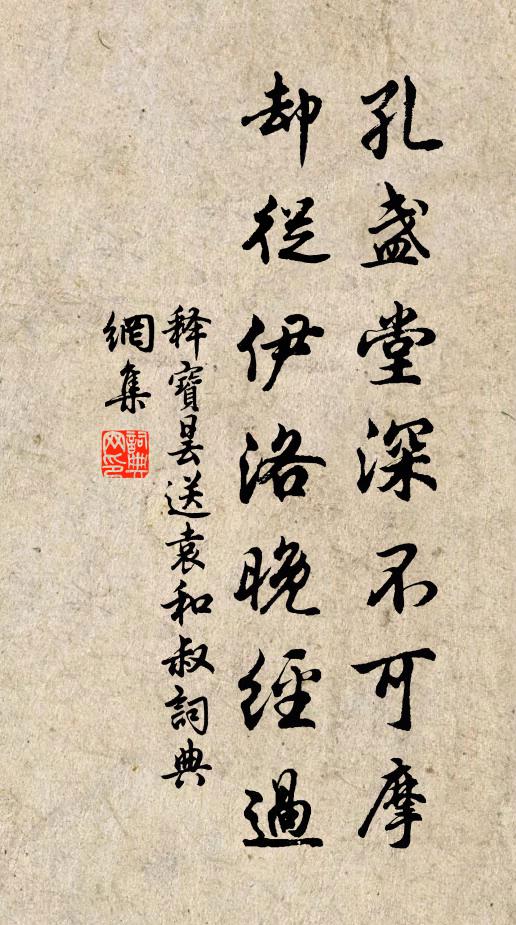 孔盏堂深不可摩
却從伊洛晚經過
释寶昙送袁和叔詞典
網集
詞典
网印